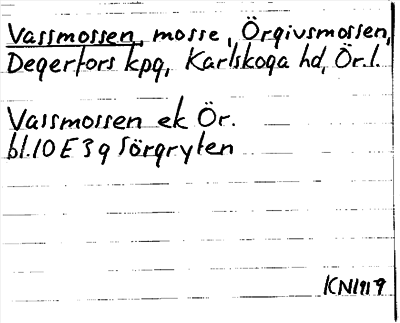 Vassmossen, mosse, Örgivsmossen,
Degerfors kpg, Karlskoga hd, Ör.l.
Vassmossen ek Ör.
bl.10 E 3 g Sörgryten